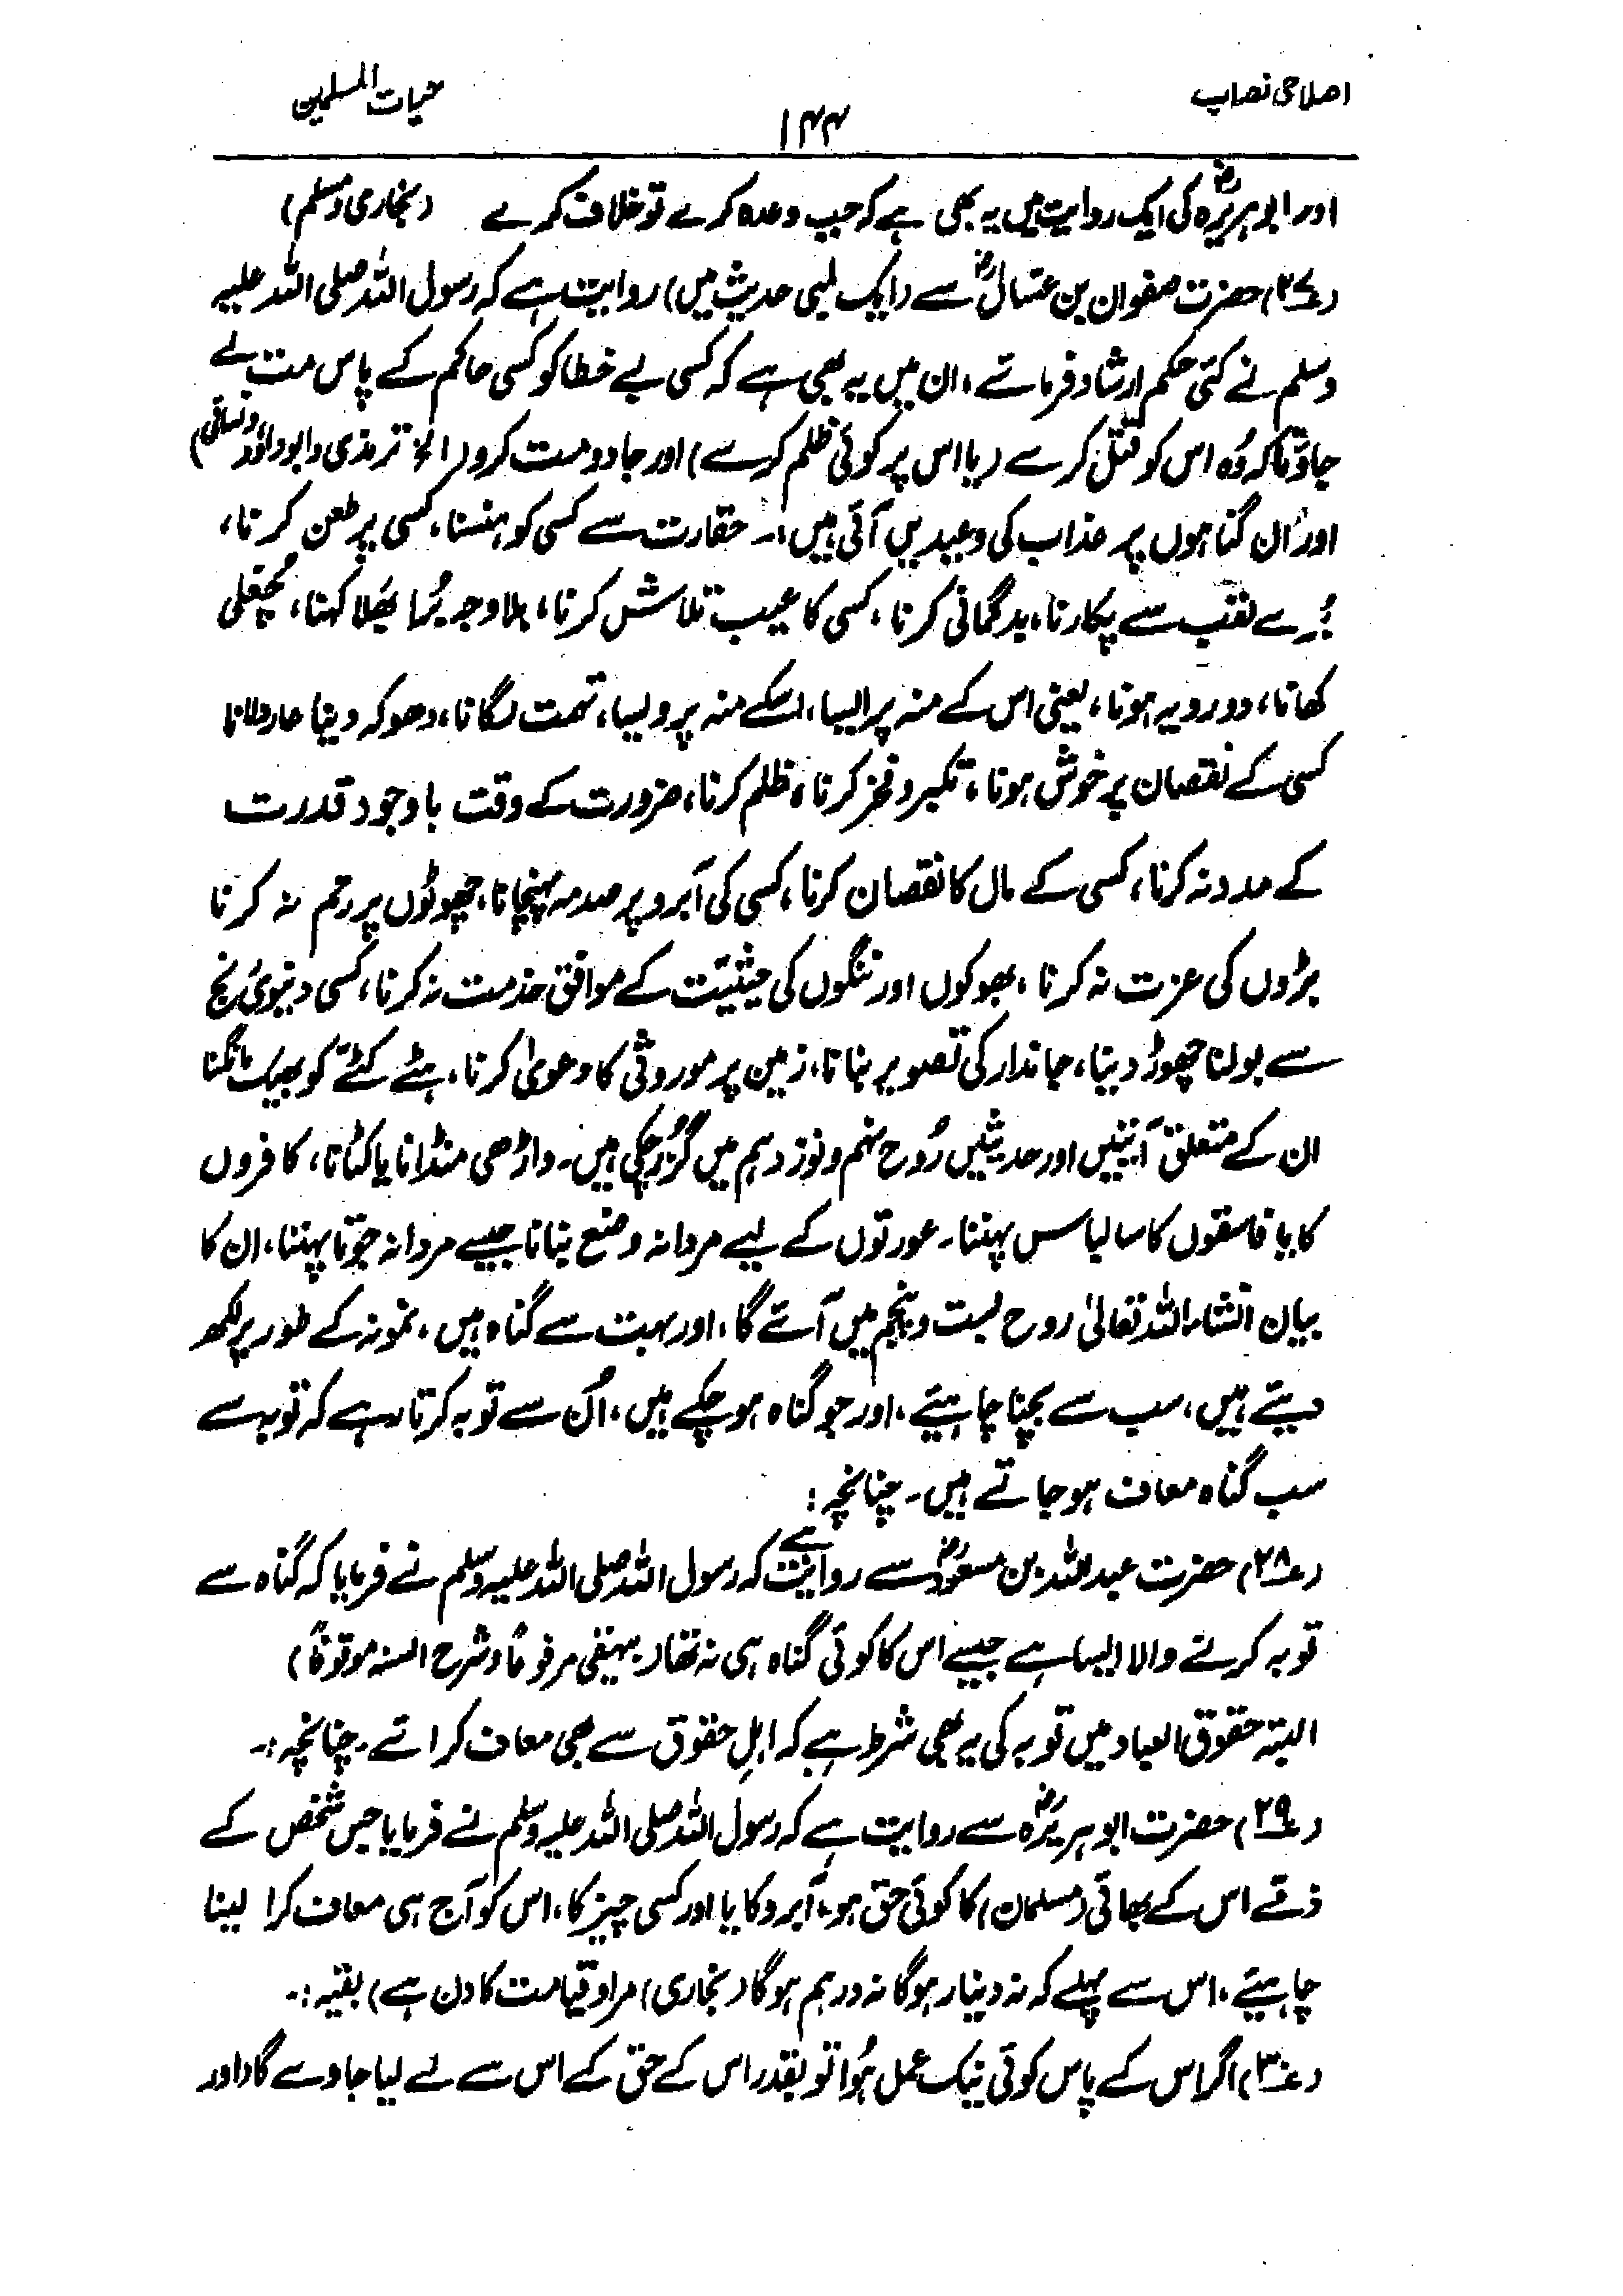 اصلاحی نصاب
حیات المسلمین
۱۴۴
اور ابوہریرہؓ کی ایک روایت میں یہ بھی ہے کہ جب وعدہ کرے تو خلاف کرے (بخاری و مسلم)
(ع۲۷) حضرت صفوان بن عسّالؓ سے (ایک لمبی حدیث میں) روایت ہے کہ رسول اللہ صلی اللہ علیہ
وسلم نے کئی حکم ارشاد فرمائے، ان میں یہ بھی ہے کہ کسی بے خطا کو کسی حاکم کے پاس مت لے
جاؤ تاکہ وُہ اس کو قتل کرے (یا اس پر کوئی ظلم کرے) اور جادو مت کرو (الخ ترمذی و ابو داؤد و نسائی)
اور اُن گناہوں پر عذاب کی وعیدیں آئی ہیں:۔ حقارت سے کسی کو ہنسنا، کسی پر طعن کرنا،
بُرے لقب سے پکارنا، بدگمانی کرنا، کسی کا عیب تلاش کرنا، بلاوجہ بُرا بھَلا کہنا، چُغلی
کھانا، دو رویہ ہونا، یعنی اس کے منہ پر ایسا، اسکے منہ پر ویسا، تہمت لگانا، دھوکہ دینا عار دلانا
کسی کے نقصان پر خوش ہونا، تکبر و فخر کرنا، ظلم کرنا، ضرورت کے وقت باوجود قدرت
کے مدد نہ کرنا، کسی کے مال کا نقصان کرنا، کسی کی آبرو پر صدمہ پہنچانا، چھوٹوں پر رحم نہ کرنا
بڑوں کی عزت نہ کرنا، بھوکوں اور ننگوں کی حیثیّت کے موافق خدمت نہ کرنا، کسی دنیوی رنج
سے بولنا چھوڑ دینا، جاندار کی تصویر بنانا، زمین پر موروثی کا دعویٰ کرنا، ہٹے کٹّے کو بھیک مانگنا
ان کے متعلق آیتیں اور حدیثیں رُوح نہم و نوزدہم میں گزر چکی ہیں۔ داڑھی منڈانا یا کٹانا، کافروں
کا یا فاسقوں کا سا لباس پہننا۔ عورتوں کے لیے مردانہ وضع بنانا جیسے مردانہ جوتا پہننا، ان کا
بیان انشاء اللہ تعالیٰ روح بست و پنجم میں آئے گا، اور بہت سے گناہ ہیں، نمونہ کے طور پر لکھ
دیئے ہیں، سب سے بچنا چاہیئے، اور جو گناہ ہو چکے ہیں، اُن سے توبہ کرتا رہے کہ توبہ سے
سب گناہ معاف ہو جاتے ہیں۔ چنانچہ:
(ع۲۸) حضرت عبداللہ بن مسعودؓ سے روایت ہے کہ رسول اللہ صلی اللہ علیہ وسلم نے فرمایا کہ گناہ سے
توبہ کرنے والا ایسا ہے جیسے اس کا کوئی گناہ ہی نہ تھا (بیہقی مرفوعاً و شرح السنہ موقوفاً)
البتہ حقوق العباد میں توبہ کی یہ بھی شرط ہے کہ اہلِ حقوق سے بھی معاف کرائے۔ چنانچہ:۔
(ع۲۹) حضرت ابوہریرہؓ سے روایت ہے کہ رسول اللہ صلی اللہ علیہ وسلم نے فرمایا جس شخص کے
ذمّے اس کے بھائی (مسلمان) کا کوئی حق ہو، آبرو کا یا اور کسی چیز کا، اس کو آج ہی معاف کرا لینا
چاہیئے، اس سے پہلے کہ نہ دینار ہوگا نہ درہم ہوگا (بخاری) مراد قیامت کا دن ہے) بقیہ:۔
(ع۳۰) اگر اس کے پاس کوئی نیک عمل ہُوا تو بقدر اس کے حق کے اس سے لے لیا جاوے گا (اور